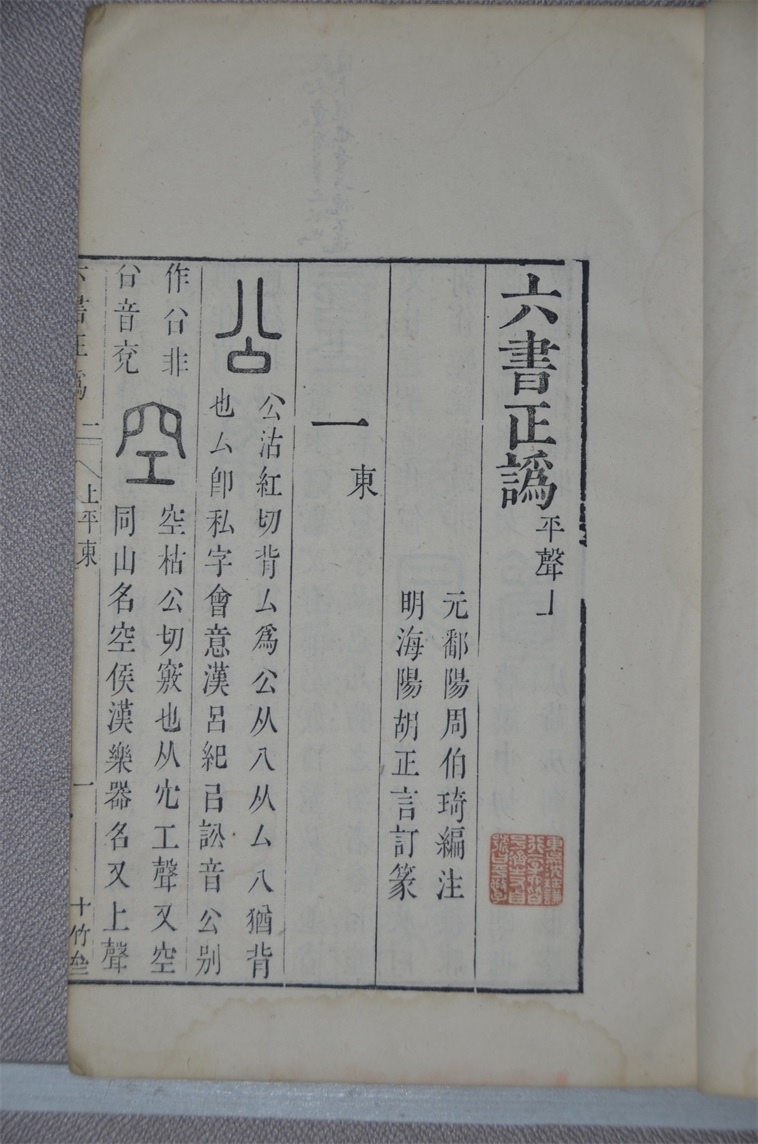 六書正譌 平聲上
元鄱陽周伯琦編注
明海陽胡正言訂篆
一東
公
公沽紅切背厶爲公从八从厶八猶背
也厶卽私字會意漢呂紀㠯訟音公別
作㕣非
㕣音兗
空
空枯公切竅也从穴工聲又空
同山名空侯漢樂器名又上聲
六書正譌 一 上平東 一 十竹